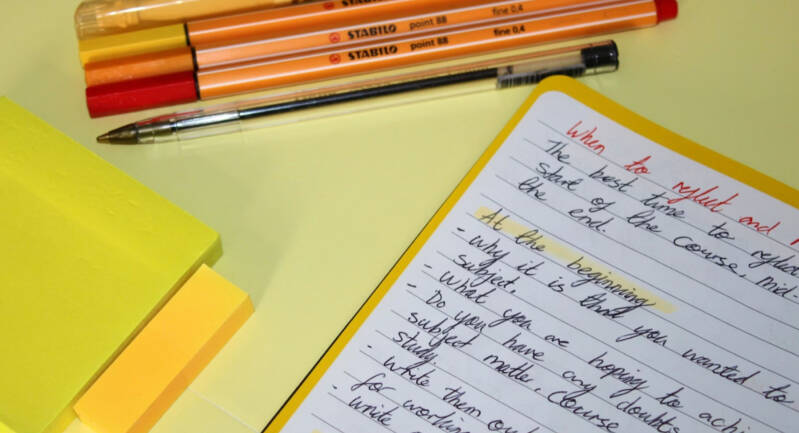 STABILO point 88 fine 0,4
STABILO point 88 fine 0,4
STABILO point 88 fine 0,4
When to reflect and
The best time to reflect
start of the course, mid-
the end.
At the beginning
- why it is that you wanted to
subject.
- What you are hoping to achi
- Do you have any doubts
subject matter. Course
study.
- write them out
for working
- write